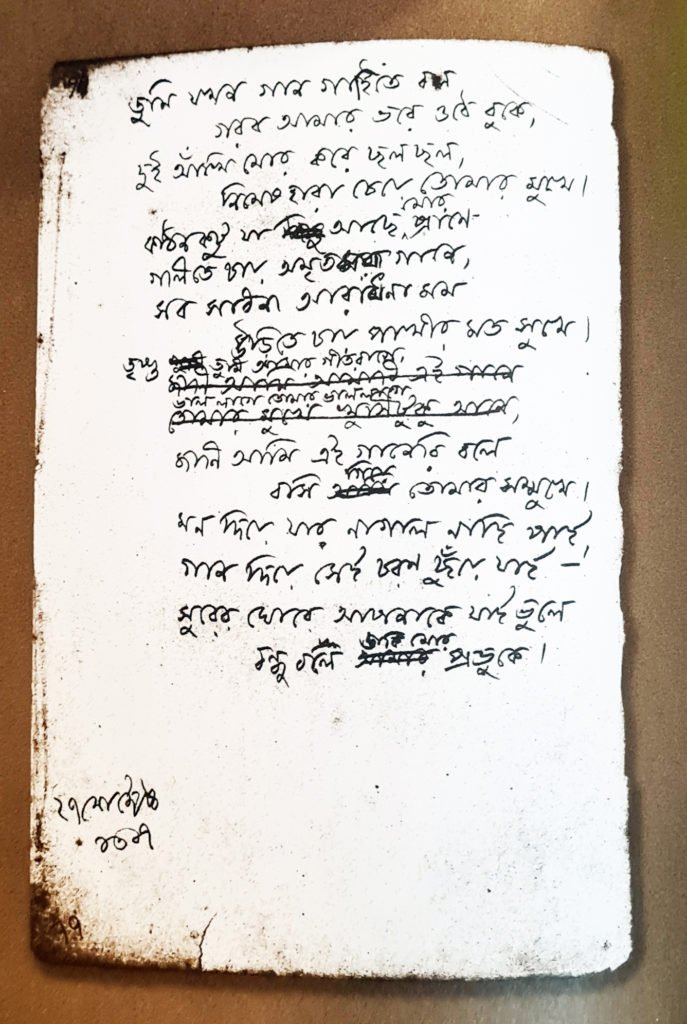 তুমি যখন গান গাহিতে বল
গরব আমার ভরে ওঠে বুকে,
দুই আঁখি মোর করে ছলছল,
নিমেষহারা চেয়ে তোমার মুখে।
মোর
কঠিন কটু যা আছে প্রাণে–
গলিতে চায় অমৃতময় গানে,
সব সাধনা আরাধনা মম
উড়িতে চায় পাখীর মত সুখে।
তৃপ্ত তুমি আমার গীতরাগে,
এই গানে
ভাল লাগে তোমার ভাল লাগে
তোমার মুখে খুসিটুকু আনে,
জানি আমি এই গানেরি বলে
গিয়ে
বসি তোমার সম্মুখে।
মন দিয়ে যার নাগাল নাহি পাই,
গান দিয়ে সেই চরণ ছুঁয়ে যাই –
সুরের ঘোরে আপনাকে যাই ভুলে
ডাকি মোর
বন্ধু বলে প্রভুকে।
২৭
১৩১৭